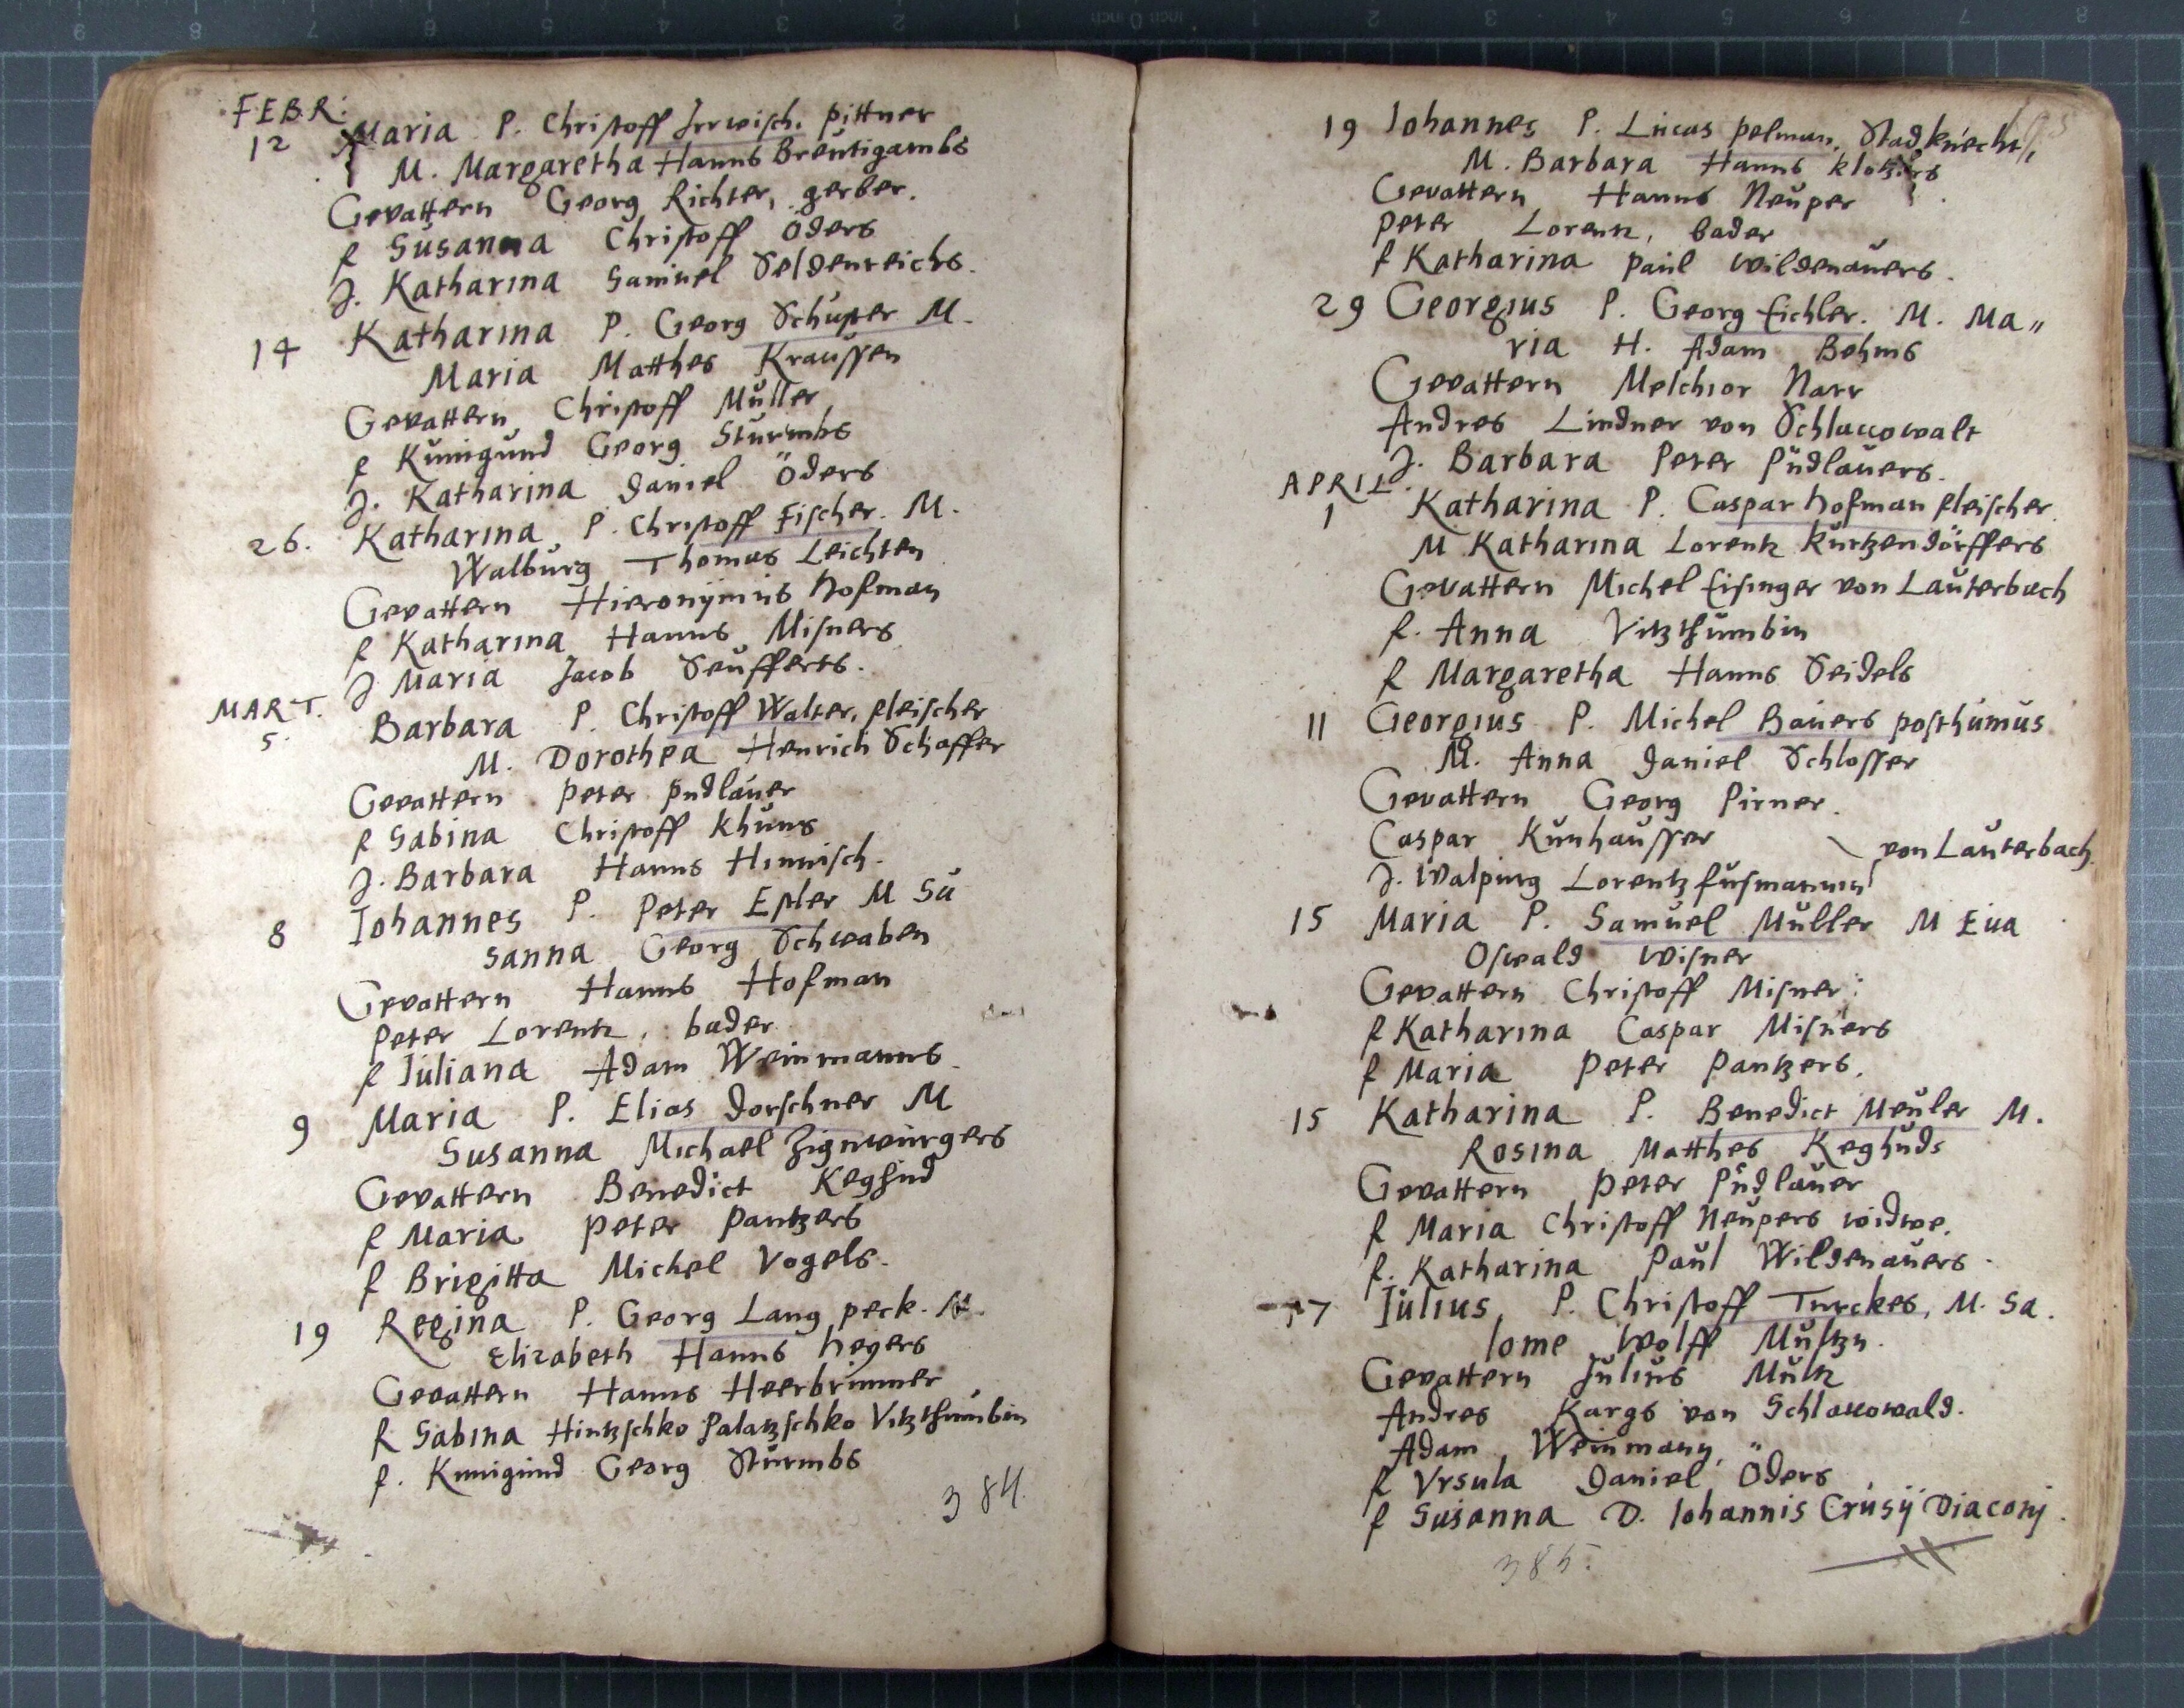 FEBR:
12 Maria P. Christoff Irrwisch. pittner
M. Margaretha Hanns Breutigambs
Gevattern Georg Richter, gerber.
f Susanna Christoff Öders
J. Katharina Samuel Seldenreichs.
14 Katharina P. Georg Schuster M.
Maria Matthes Kraussen
Gevattern Christoff Müller
f Kunigund Georg Sturmbs
J. Katharina Daniel Öders
26. Katharina P. Christoff Fischer. M.
Walburg Thomas Leichten
Gevattern Hieronÿmus Hofman
f Katharina Hanns Misners
J Maria Jacob Seufferts.
MART.
5. Barbara P. Christoff Walter, fleischer
M. Dorothea Henrich Schaffer
Gevattern Peter Püdlauer
f Sabina Christoff Khuns
J. Barbara Hanns Himisch.
8 Iohannes P. Peter Esler M Su
sanna Georg Schwaben
Gevattern Hanns Hofman
Peter Lorentz, bader
f Iuliana Adam Weinmanns.
9 Maria P. Elias Dorschner M
Susanna Michael Zignwürgers
Gevattern Benedict Keghud
f Maria Peter Pantzers
f Brigitta Michel Vogels.
19 Regina P. Georg Lang peck. M.
Elizabeth Hanns Hegers
Gevattern Hanns Heerbrunner
f Sabina Hintzschko Palatzschko Vitzthumbin
f. Kunigund Georg Sturmbs
384
19 Iohannes P. Lucas Pelman, Stadknecht,
M. Barbara Hanns
Gevattern Hanns Neuper
Peter Lorentz, bader
f Katharina Paul Wildenauers.
29 Georgius P. Georg Eichler. M. Ma"
ria H. Adam Behms
Gevattern Melchior Narr
Andres Lindner von Schlaccowalt
J. Barbara Peter Püdlauers.
APRIL.
1 Katharina P. Caspar Hofman fleischer.
M Katharina Lorentz Kurtzendörffers
Gevattern Michel Eisinger von Lauterbach
f. Anna Vitzthumbin
f Margaretha Hanns Seidels
11 Georgius P. Michel Bauers posthumus
M. Anna Daniel Schlosser
Gevattern Georg Pirner.
Caspar Kunhausser
von Lauterbach.
J. Walpurg Lorentz
15 Maria P. Samuel Muller M Eua
Oswald Wisner
Gevattern Christoff Misner
f Katharina Caspar Misners
f Maria Peter Pantzers.
15 Katharina P. Benedict Meuler M.
Rosina Matthes Keghuds
Gevattern Peter Püdlauer
f Maria Christoff Neupers widwe.
f. Katharina Paul Wildenauers.
17 Iulius P. Christoff Turckes, M. Sa.
lome Wolff Multzn.
Gevattern Julius Multz
Andres Kargs von Schlaccowald.
Adam Weinmann
f Vrsula Daniel Öders
f Susanna D. Iohannis Crusÿ Diaconj.
385.